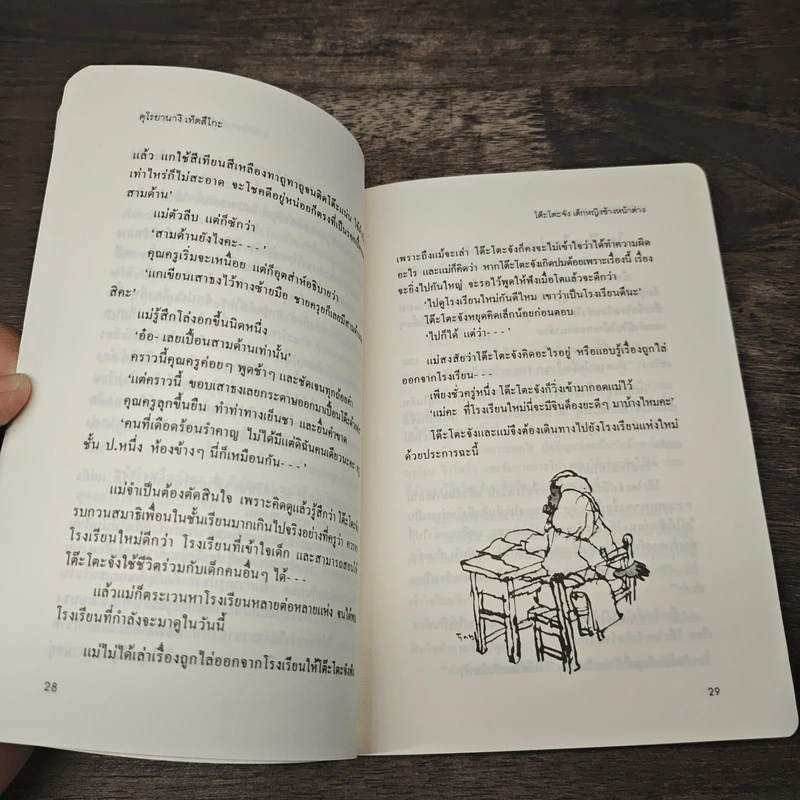 คุโรยานางิ เท็ตสึโกะ
แล้ว แกใช้สีเทียนสีเหลืองทาถูทาถูจนติดโต๊ะแน่น
เท่าไหร่ก็ไม่สะอาด จะโชคดีอยู่หน่อยก็ตรงที่เป็นรอยเปื้อน
สามด้าน'
แม่ตัวลีบ แต่ก็ซักว่า
'สามด้านยังไงคะ- - -'
คุณครูเริ่มจะเหนื่อย แต่ก็อุตส่าห์อธิบายว่า
'แกเขียนเสาธงไว้ทางซ้ายมือ ชายครุยก็เลยมีสามด้าน
สิคะ'
แม่รู้สึกโล่งอกขึ้นนิดหนึ่ง
'อ๋อ- เลยเปื้อนสามด้านเท่านั้น'
คราวนี้คุณครูค่อยๆ พูดช้าๆ และชัดเจนทุกถ้อยคำ
'แต่คราวนี้ ขอบเสาธงเลยกระดาษออกมาเปื้อนโต๊ะด้วยค่ะ'
คุณครูลุกขึ้นยืน ทำท่าทางเย็นชา และยื่นคำขาด
'คนที่เดือดร้อนรำคาญ ไม่ได้มีแต่ดิฉันคนเดียวนะคะ
ชั้น ป.หนึ่ง ห้องข้างๆ นี่ก็เหมือนกัน- - -'
แม่จำเป็นต้องตัดสินใจ เพราะคิดดูแล้วรู้สึกว่า โต๊ะโตะจัง
รบกวนสมาธิเพื่อนในชั้นเรียนมากเกินไปจริงอย่างที่ครูว่า
โรงเรียนใหม่ดีกว่า โรงเรียนที่เข้าใจเด็ก และสามารถสอนให้
โต๊ะโตะจังใช้ชีวิตร่วมกับเด็กคนอื่นๆ ได้- - -
แล้วแม่ก็ตระเวนหาโรงเรียนหลายต่อหลายแห่ง จนได้พบ
โรงเรียนที่กำลังจะมาดูในวันนี้
แม่ไม่ได้เล่าเรื่องถูกไล่ออกจากโรงเรียนให้โต๊ะโตะจังฟัง
28
โต๊ะโตะจัง เด็กหญิงข้างหน้าต่าง
เพราะถึงแม้จะเล่า โต๊ะโตะจังก็คงจะไม่เข้าใจว่าได้ทำความผิด
อะไร และแม่ก็คิดว่า หากโต๊ะโตะจังเกิดปมด้อยเพราะเรื่องนี้ เรื่อง
จะยิ่งไปกันใหญ่ จะรอไว้พูดให้ฟังเมื่อโตแล้วจะดีกว่า
'ไปดูโรงเรียนใหม่กันดีไหม เขาว่าเป็นโรงเรียนดีนะ'
โต๊ะโตะจังหยุดคิดเล็กน้อยก่อนตอบ
'ไปก็ได้ แต่ว่า- - -'
แม่สงสัยว่าโต๊ะโตะจังคิดอะไรอยู่ หรือแอบรู้เรื่องถูกไล่
ออกจากโรงเรียน- - -
เพียงชั่วครู่หนึ่ง โต๊ะโตะจังก็วิ่งเข้ามากอดแม่ไว้
'แม่คะ ที่โรงเรียนใหม่นี่จะมีจินด็องยะดีๆ มาบ้างไหมคะ'
โต๊ะโตะจังและแม่จึงต้องเดินทางไปยังโรงเรียนแห่งใหม่
ด้วยประการฉะนี้
29